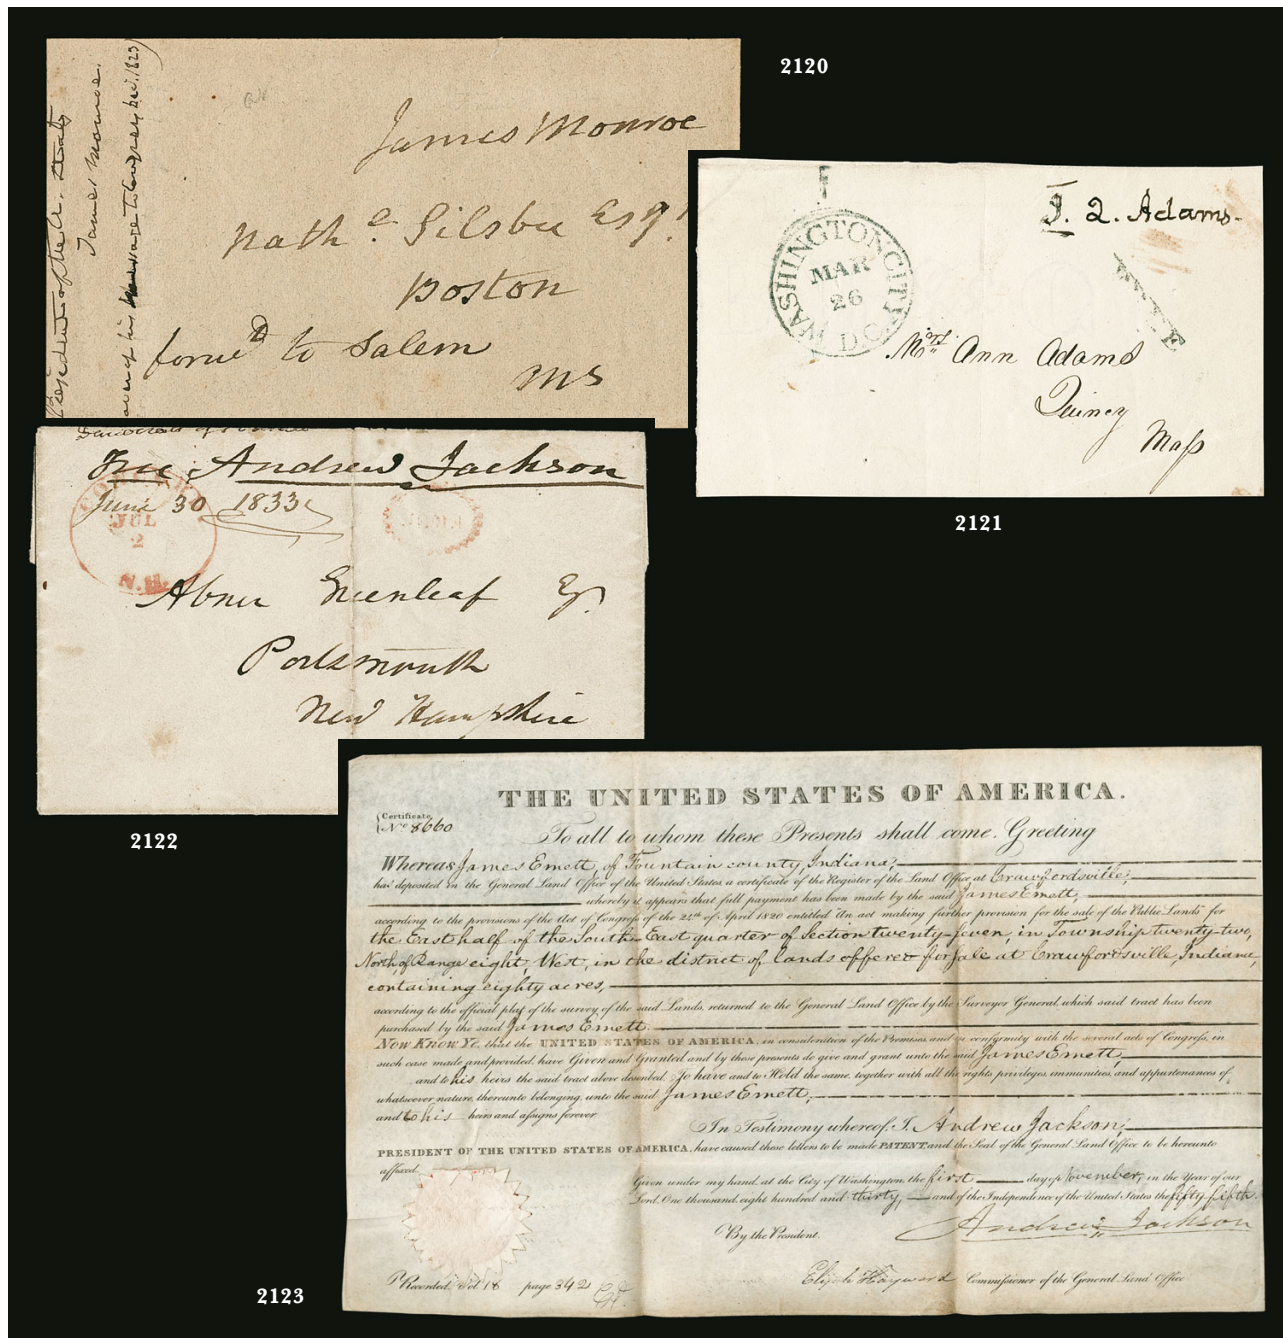 2120
President of the U. States
James Monroe.
of his message to Congress Dec. 1823)
James Monroe
Nath.e Silsbee Esq.r
Boston
forwd to Salem
Ms
J. Q. Adams.
WASHINGTON CITY
MAR
26
D.C.
FREE
Mrs Ann Adams
Quincy
Mass
2121
Free, Andrew Jackson
June 30 1833
JUL
2
N.H.
Abner Greenleaf Esq.
Portsmouth
New Hampshire
2122
THE UNITED STATES OF AMERICA.
Certificate
No 8660
To all to whom these Presents shall come, Greeting
Whereas James Emett, of Fountain county, Indiana,
has deposited in the General Land Office of the United States, a certificate of the Register of the Land Office at Crawfordsville,
whereby it appears that full payment has been made by the said James Emett,
according to the provisions of the Act of Congress of the 24th of April 1820 entitled "An act making further provision for the sale of the Public Lands" for
the East half of the South-East quarter of Section twenty-seven, in Township twenty-two,
North of Range eight, West, in the district of lands offered for sale at Crawfordsville, Indiana,
containing eighty acres,
according to the official plat of the survey of the said Lands, returned to the General Land Office by the Surveyor General, which said tract has been
purchased by the said James Emett
Now Know Ye, that the UNITED STATES OF AMERICA, in consideration of the Premises, and in conformity with the several acts of Congress, in
such case made and provided, have Given and Granted and by these presents do give and grant unto the said James Emett,
and to his heirs the said tract above described, To have and to Hold the same, together with all the rights, privileges, immunities, and appurtenances of
whatsoever nature, thereunto belonging, unto the said James Emett,
and to his heirs and assigns forever.
In Testimony whereof, I, Andrew Jackson,
PRESIDENT OF THE UNITED STATES OF AMERICA, have caused these letters to be made PATENT, and the Seal of the General Land Office to be hereunto
affixed.
Given under my hand, at the City of Washington, the first day of November, in the Year of our
Lord, One thousand, eight hundred and thirty, and of the Independence of the United States the fifty-fifth.
By the President.
Andrew Jackson
Elijah Hayward Commissioner of the General Land Office
Recorded, Vol 18 page 342
2123